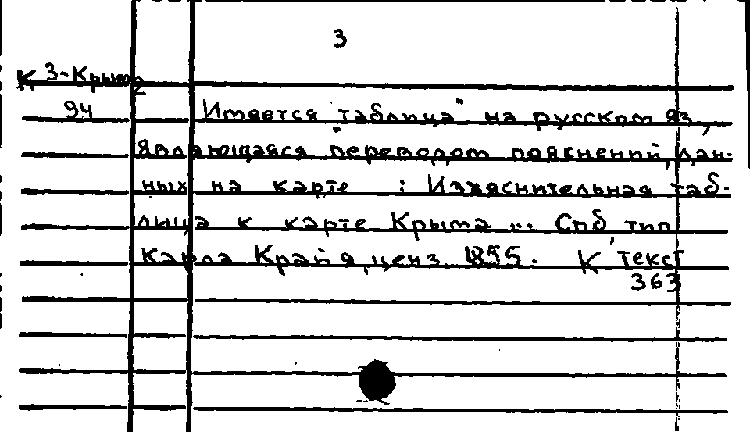 3
К 3-Крым 2
94
Имеется "таблица" на русском яз.,
являющаяся переводом пояснений, дан-
ных на карте : Изъяснительная таб-
лица к карте Крыма... Спб, тип
Карла Крайя, ценз. 1855. К текст
363